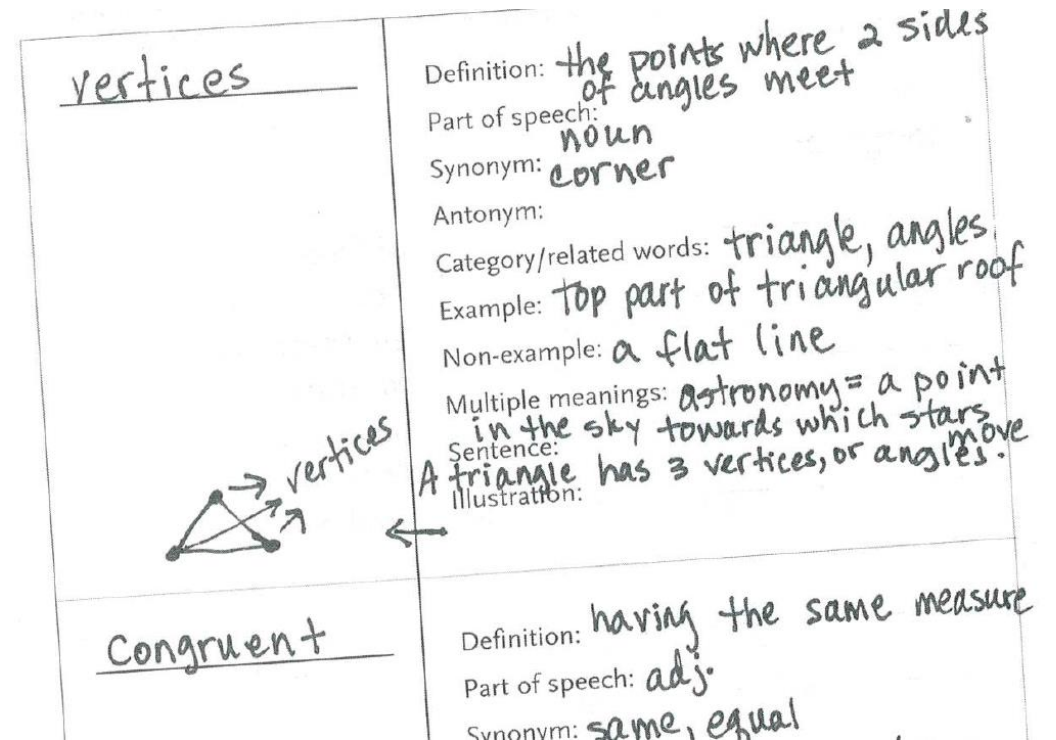 vertices
Definition: the points where 2 sides
of angles meet
Part of speech:
noun
Synonym: corner
Antonym:
Category/related words: triangle, angles
Example: Top part of triangular roof
Non-example: a flat line
Multiple meanings: astronomy = a point
in the sky towards which stars
move
Sentence:
A triangle has 3 vertices, or angles.
Illustration:
vertices
Congruent
Definition: having the same measure
Part of speech: adj.
Synonym: same, equal